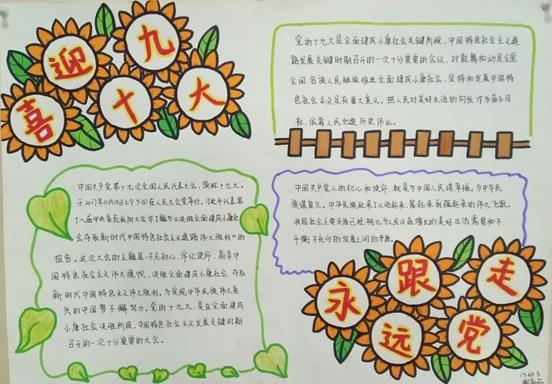 喜迎十九大
党的十九大是全面建成小康社会关键阶段、中国特色社会主义道路
发展关键时期召开的一次十分重要的会议、对鼓舞和动员全党
全国各族人民继续推进全面建成小康社会、坚持和发展中国特
色社会主义具有重大意义。把人民对美好生活的向往作为奋斗目
标,依靠人民创造历史伟业。
中国共产党第十九次全国人民代表大会,简称十九大。
于2017年10月18日上午9:00在人民大会堂举行。习近平代表第
十八届中央委员会向大会作了题为
会夺取新时代中国特色社会主义道路伟大胜利》的
报告。这次大会的主题是:不忘初心,牢记使命,高举
中国特色社会主义伟大旗帜,决胜全面建成小康社会,夺取
新时代中国特色社会主义伟大胜利,为实现中华民族伟大复
兴的中国梦不懈努力。党的十九大,是在全面建成
小康社会决胜阶段、中国特色社会主义发展关键时期
召开的一次十分重要的大会。
中国共产党人的初心和使命,就是为中国人民谋幸福,为中华民
族谋复兴。中华民族迎来了从站起来、富起来到强起来的伟大飞跃。
我国社会主要矛盾已经转化为人民日益增长的美好生活需要和不
平衡不充分的发展之间的矛盾。
永远跟党走